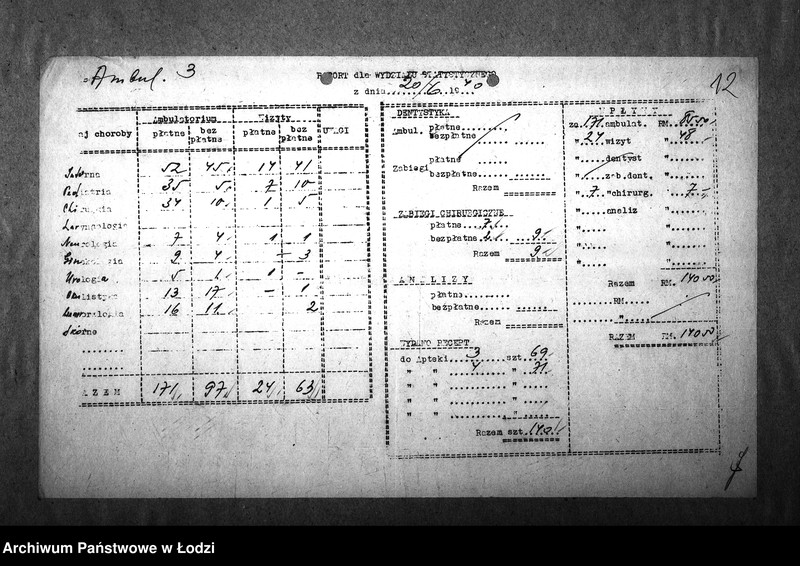 Ambul. 3
RAPORT dla WYDZIAŁU STATYSTYCZNEGO
z dnia 20/6 1940
12
aj choroby | Ambulatorium płatne | bez płatne | Wizyty płatne | bez płatne | UWAGI
Interna 52 45 14 41
Pediatria 35 5 7 10
Chirurgia 34 10 1 5
Laryngologia
Neurologia 7 4 1 1
Ginekologia 9 4 ÷ 3
Urologia 5 1 1 –
Okulistyka 13 17 – 1
16 11 2
Skórne
AZEM 171 97 24 63
DENTYSTYKA
Ambul. płatne
bezpłatne
Zabiegi płatne
bezpłatne
Razem
ZABIEGI CHIRURGICZNE
płatne 7
bezpłatne 2 9
Razem 9
ANALIZY
płatne
bezpłatne
Razem
WYDANO RECEPT
do Apteki 3 szt. 69
" " 4 " 71
" " "
" " "
Razem szt. 140
WPŁYWY
za 171 ambulat. RM. 85.50
" 24 wizyt " 48.–
" dentyst "
" zab.dent. "
" 7 "chirurg. " 7.–
" analiz "
" "
" "
Razem RM. 140 50
RM.
"
RAZEM RM. 140 50
Archiwum Państwowe w Łodzi